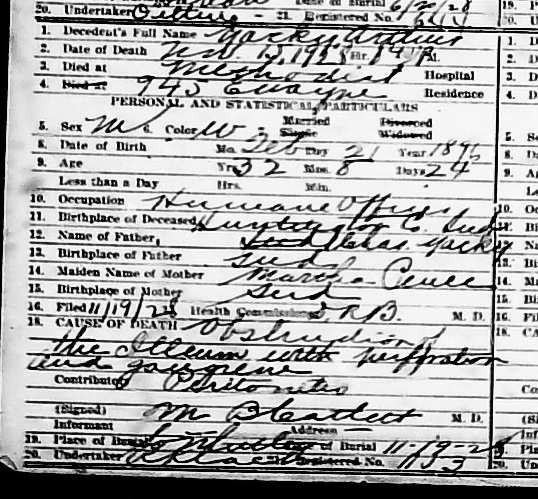 20. Undertaker 21. Registered No.
1. Decedent's Full Name Yacky Arthur
2. Date of Death Nov 15, 1928 Hr. M.
3. Died at Methodist Hospital
4. Died at 945 E Wayne Residence
PERSONAL AND STATISTICAL PARTICULARS
Married Divorced
5. Sex M 6. Color W 7. Single Widowed
8. Date of Birth Mo. Feb Day 21 Year 1896
9. Age Yrs. 32 Mos. 8 Days 24
Less than a Day Hrs. Min.
10. Occupation Humane Officer
11. Birthplace of Deceased Huntington Co. Ind
12. Name of Father, Chas. Yacky
13. Birthplace of Father Ind
14. Maiden Name of Mother Martha
15. Birthplace of Mother Ind
16. Filed 11/19/28 Health Commissioner, R B. M. D.
18. CAUSE OF DEATH Obstruction of
the Illeum with perforation
and gangrene
Contributory Peritonitis
(Signed) M. D.
Informant Address
19. Place of Burial Date of Burial 11-19-28
20. Undertaker Registered No. 1133